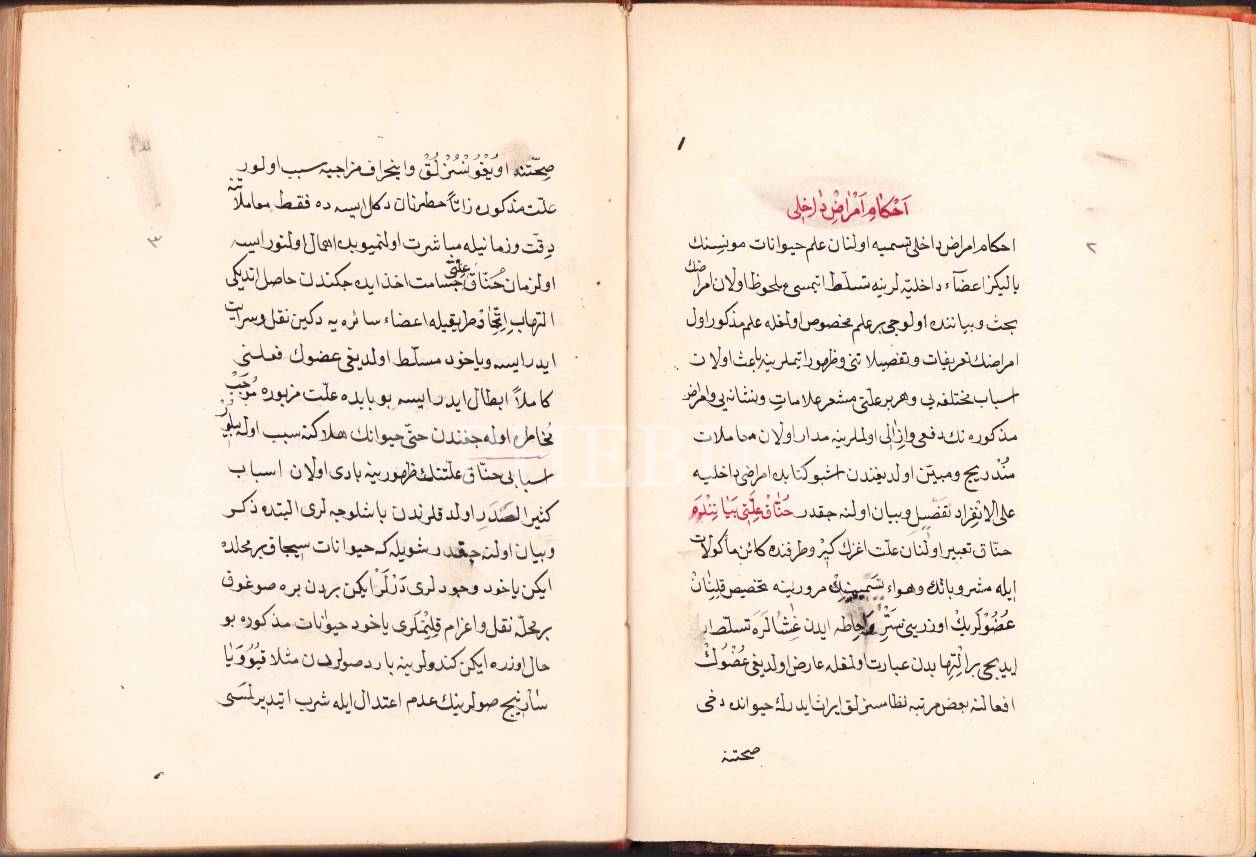 ١
٢
اَحْكَامِ اَمْرَاضِ دَاخِلِى
احكام امراض داخلى تسميه اولنان علم حيوانات مونسنك
يالكز اعضآء داخليه لرينه تسلّط اتمسى ملحوظ اولان امراضك
بحث و بياننده اولوجى بر علم مخصوص اولغله علم مذكور اول
امراضك تعريفات و تفصيلاتنى و ظهور اتملرينه باعث اولان
اسباب مختلفه يى و هر بر علتى مشعر علامات و نشانه يى و امراض
مذكوره نك دفعى و ازالى اولملرينه مدار اولان معاملات
مُنْدَرِج و مبيّن اولديغندن اشبو كتابده امراض داخليه
على الانفراد تفصيل و بيان اولنه جقدر خُنَّاقْ عِلَّتِى بَيَانِنْدَه
خنّاق تعبير اولنان علت اغزك كيرو طرفنده كائن مأكولات
ايله مشروباتك و هواء مرورينه تخصيص قلنان
عُضُولَرِيكْ اوزرينى سَتْر و احاطه ايدن غِشَالَرَه تسلّط
ايديجى بر اِلْتِهابدن عبارت اولغله عارض اولديغى عُضُوكْ
افعالنه بعض مرتبه نظامسزلق ايراث ايدرك حيوانده دخى
صحتنه
٣
صِحّتنه اُويْغُونْسُزْلُقْ و اِنحراف مزاجيه سبب اولور
علّت مذكوره ذاتاً خطرناك دكل ايسه ده فقط معاملاتنه
دقّت و زمانيله مباشرت اولنميوبده اهمال اولنور ايسه
اولزمان خُنّاق علتى جسامت اخذ ايده جكندن حاصل ايتديكى
التهاب اِتّحاد طريقيله اعضاء سائره يه دكين نقل و سرايت
ايدر ايسه و ياخود مسلّط اولديغى عضوك فعلنى
كاملاً ابطال ايدر ايسه بو بابده علّت مزبوره مُوجب
مُخاطره اوله جغندن حتى حيوانك هلاكنه سبب اوله بيلور
اسبابى خنّاق علّتنك ظهورينه بادى اولان اسباب
كثير الصدر اولدقلرندن باشلوجه لرى البتده ذكر
و بيان اولنه جقدر شويله كه حيوانات سيجاق بر محلده
ايكن ياخود وجودلرى دَرْلَرْ ايكن بردن بره صوغوق
بر محلّه نقل و اعزام قلنمكرى ياخود حيوانات مذكوره بو
حال اوزره ايكن كندولرينه بارد صولردن مثلا قيو و يا
سارنيج صولرينك عدم اعتدال ايله شرب ايتديرلمسى